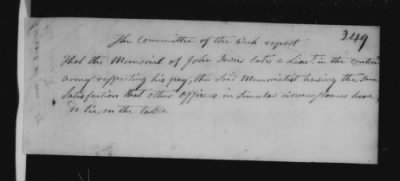 249
The Committee of the Week report
That the Memorial of John Irwin late a Lieut. in the
Army respecting his pay; the said Memorialist having the same
Satisfaction that other Officers in similar circumstances have,
Do lie on the table